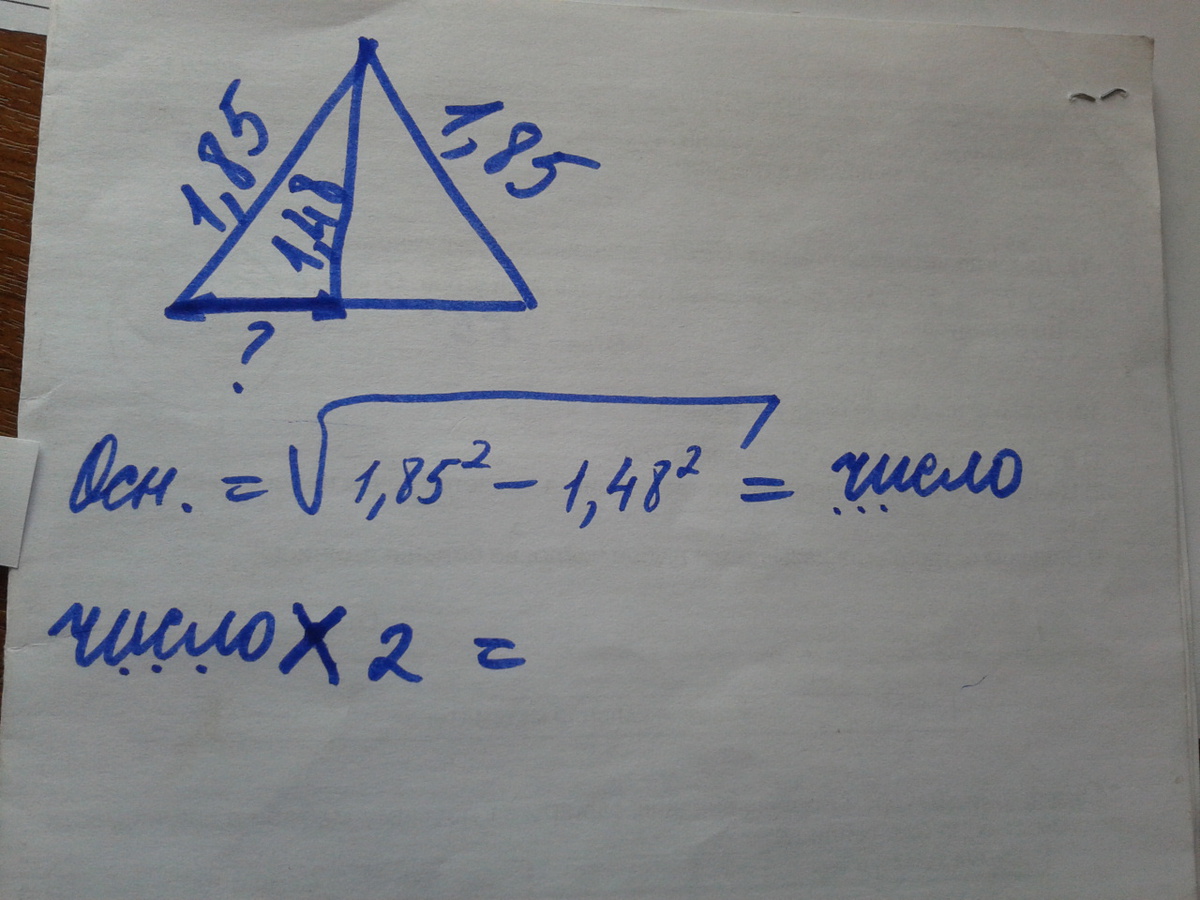 1,85
1,85
1,48
?
Осн. = √1,85² − 1,48² = число
число X 2 =